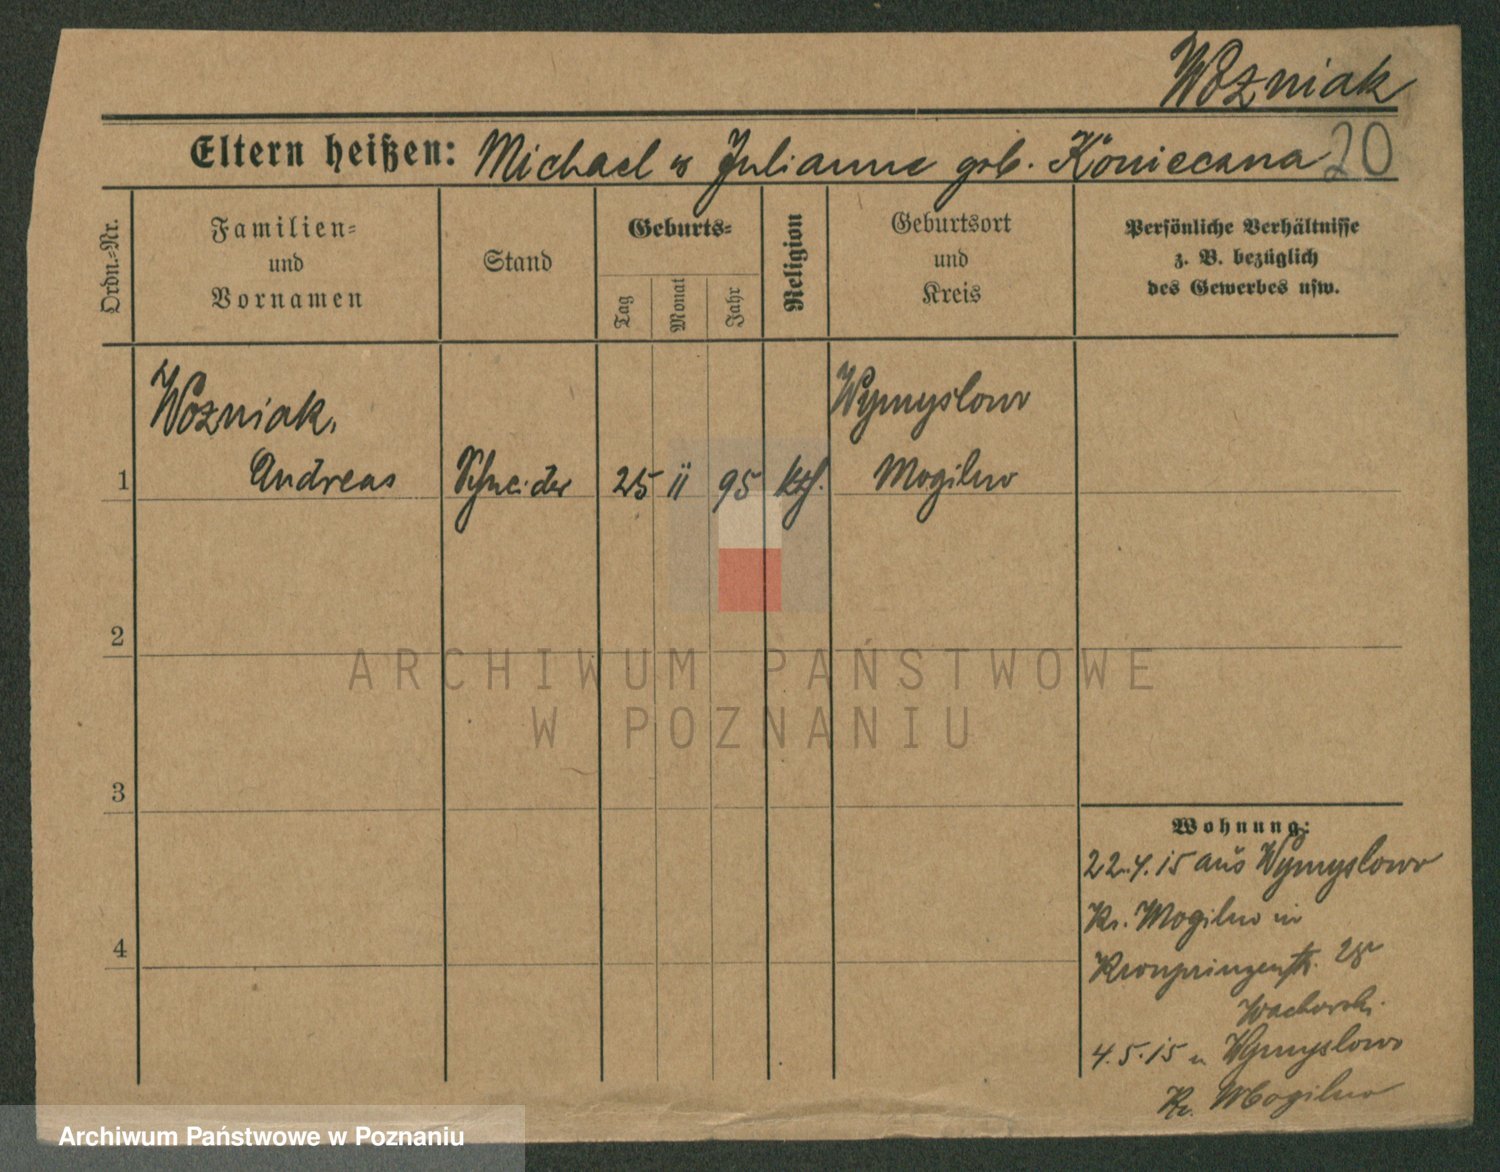 Wozniak
Eltern heißen: Michael u Julianne geb. Koniecana 20
Ordn.-Nr.
Familien-
und
Vornamen
Stand
Geburts-
Tag
Monat
Jahr
Religion
Geburtsort
und
Kreis
Persönliche Verhältnisse
z. B. bezüglich
des Gewerbes usw.
Wozniak,
Wymyslowo
1 Andreas Schneider 25 ii 95 kth. Mogilno
2
ARCHIWUM PAŃSTWOWE
W POZNANIU
3
Wohnung:
22.4.15 aus Wymyslowo
Kr. Mogilno in
4
Kronprinzenstr.
4.5.15 n Wymyslowo
Kr. Mogilno
Archiwum Państwowe w Poznaniu